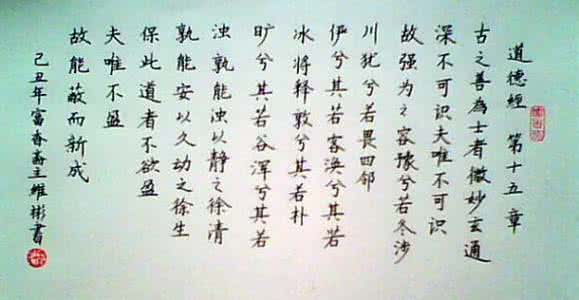 道德經 第十五章
古之善為士者微妙玄通
深不可识夫唯不可识
故强为之容豫兮若冬涉
川犹兮若畏四邻
俨兮其若客涣兮其若
冰将释敦兮其若朴
旷兮其若谷浑兮其若
浊孰能浊以静之徐清
孰能安以久动之徐生
保此道者不欲盈
夫唯不盈
故能蔽而新成
己丑年富香斋主维彬書